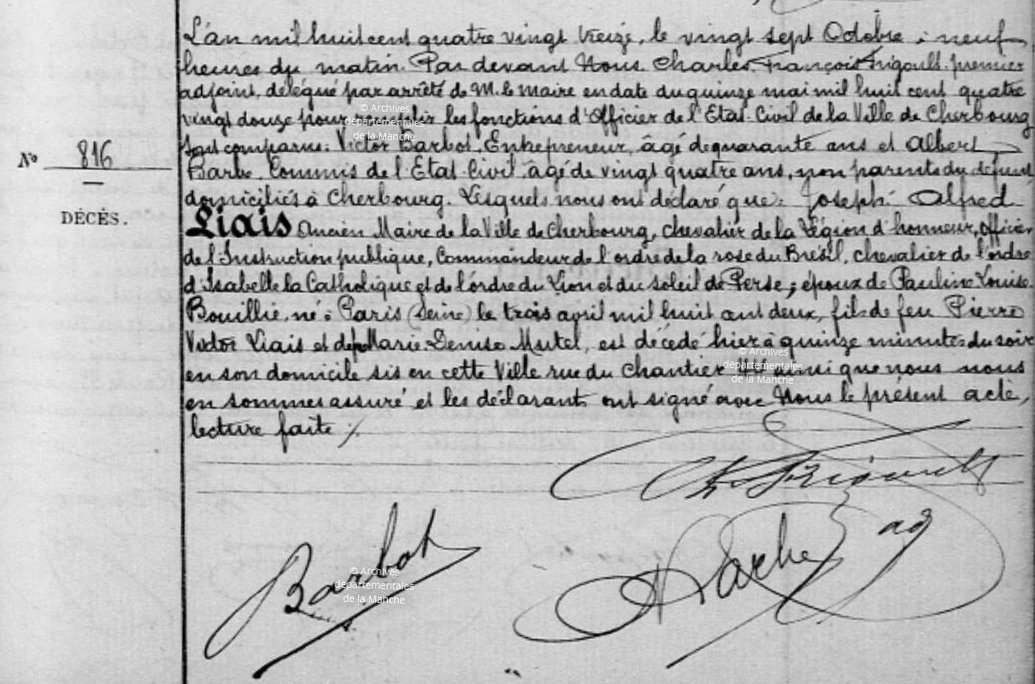 L'an mil huit cent quatre vingt treize, le vingt sept Octobre à neuf
heures du matin. Par devant Nous Charles François Frigoult premier
adjoint, délégué par arrêté de M. le Maire en date du quinze mai mil huit cent quatre
vingt douze pour remplir les fonctions d'Officier de l'Etat-Civil de la Ville de Cherbourg
sont comparus: Victor Barbot, Entrepreneur, âgé de quarante ans et Albert
Nº 816
Barbe Commis de l'Etat-Civil, âgé de vingt quatre ans, non parents du défunt
domiciliés à Cherbourg. Lesquels nous ont déclaré que: Joseph Alfred
DÉCÈS.
Liais Ancien Maire de la Ville de Cherbourg, chevalier de la Légion d'honneur, officier
de l'Instruction publique, Commandeur de l'ordre de la rose du Brésil, chevalier de l'ordre
d'Isabelle la Catholique et de l'ordre du Lion et du soleil de Perse; époux de Pauline Louise
Bouillie, né à Paris (Seine) le trois avril mil huit cent deux, fils de feu Pierre
Victor Liais et de Marie Denise Mutel, est décédé hier à quinze minutes du soir
en son domicile sis en cette Ville rue du Chantier ainsi que nous nous
en sommes assuré et les déclarant ont signé avec Nous le présent acte,
lecture faite ./.
Ch Frigoult
Barbot
A Barbe adj
© Archives
départementales
de la Manche
© Archives
départementales
de la Manche
© Archives
départementales
de la Manche